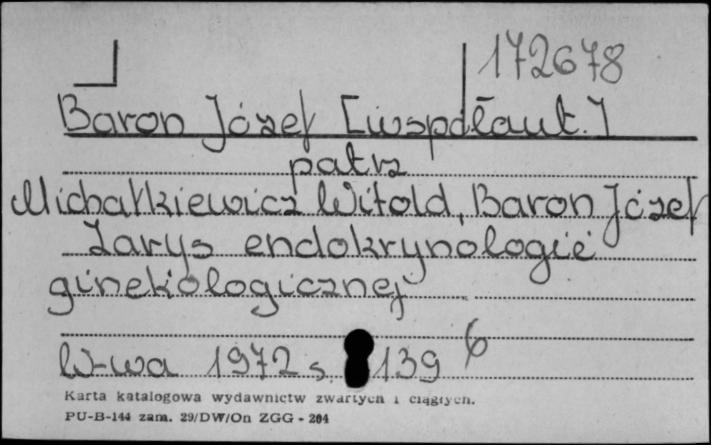 172678
Baron Józef [współaut.]
patrz
Michałkiewicz Witold, Baron Józef
Zarys endokrynologii
ginekologicznej
W-wa 1972 s. 139 6
Karta katalogowa wydawnictw zwartych i ciągłych.
PU-B-144 zam. 29/DW/On ZGG - 204